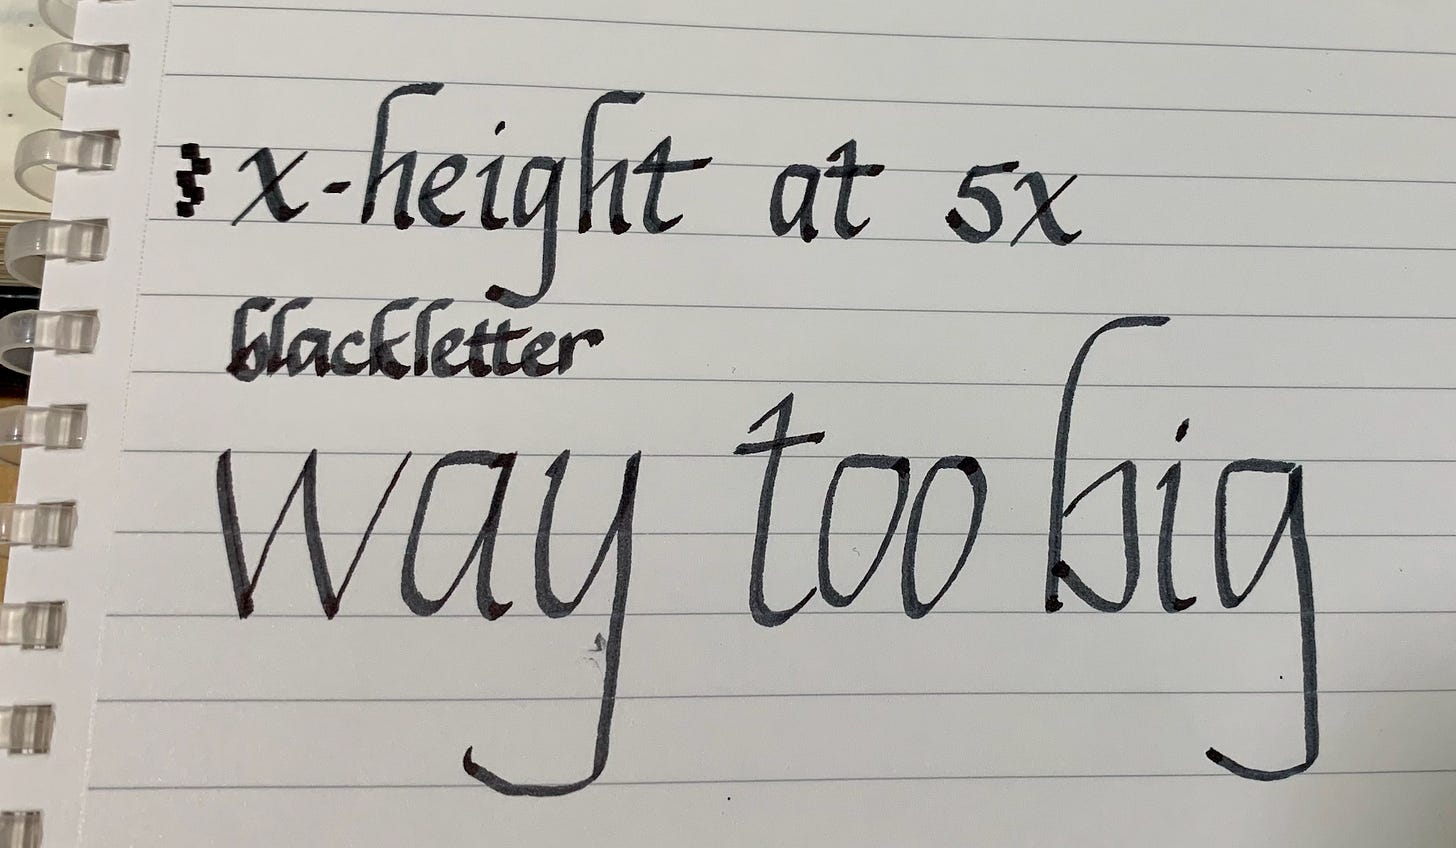 x-height at 5x
blackletter
way too big